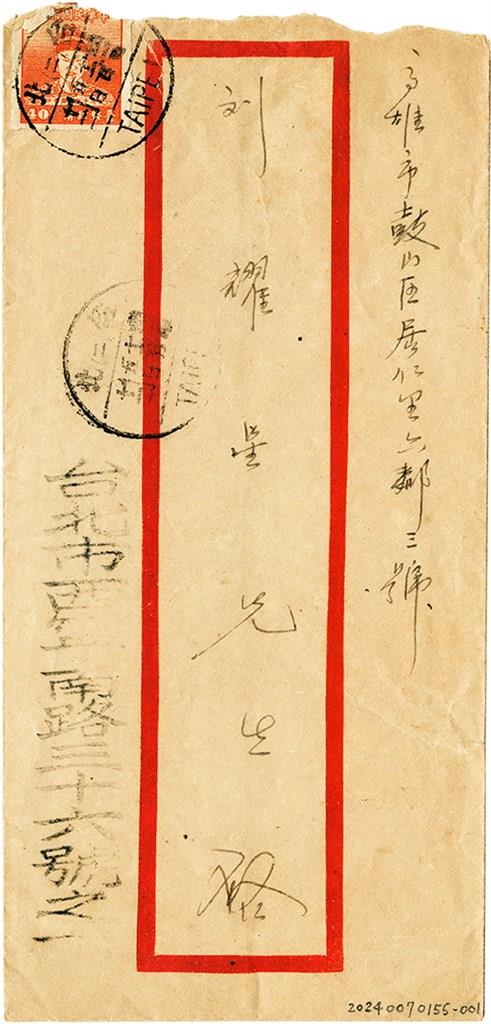 高雄市鼓山区居仁里六鄰三號
刘耀星先生啟
台北市重慶南路三十六號之一
40
台北
TAIPEI
台北
TAIPEI
20240070155-001